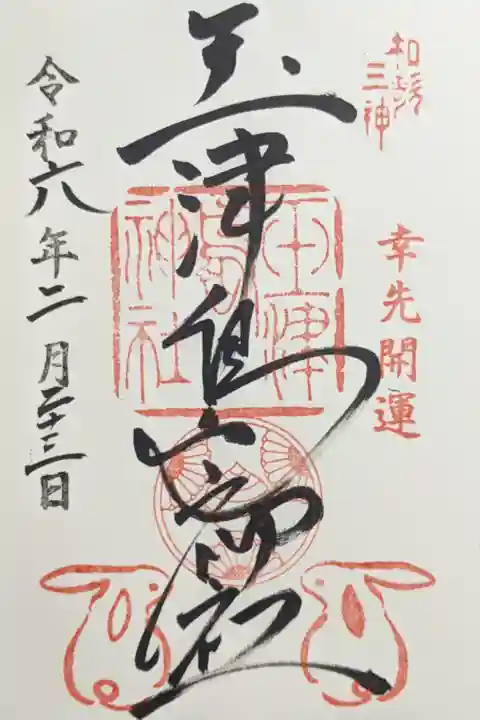 和歌三神
幸先開運
玉津島神社
玉津島神社
令和六年二月二十三日